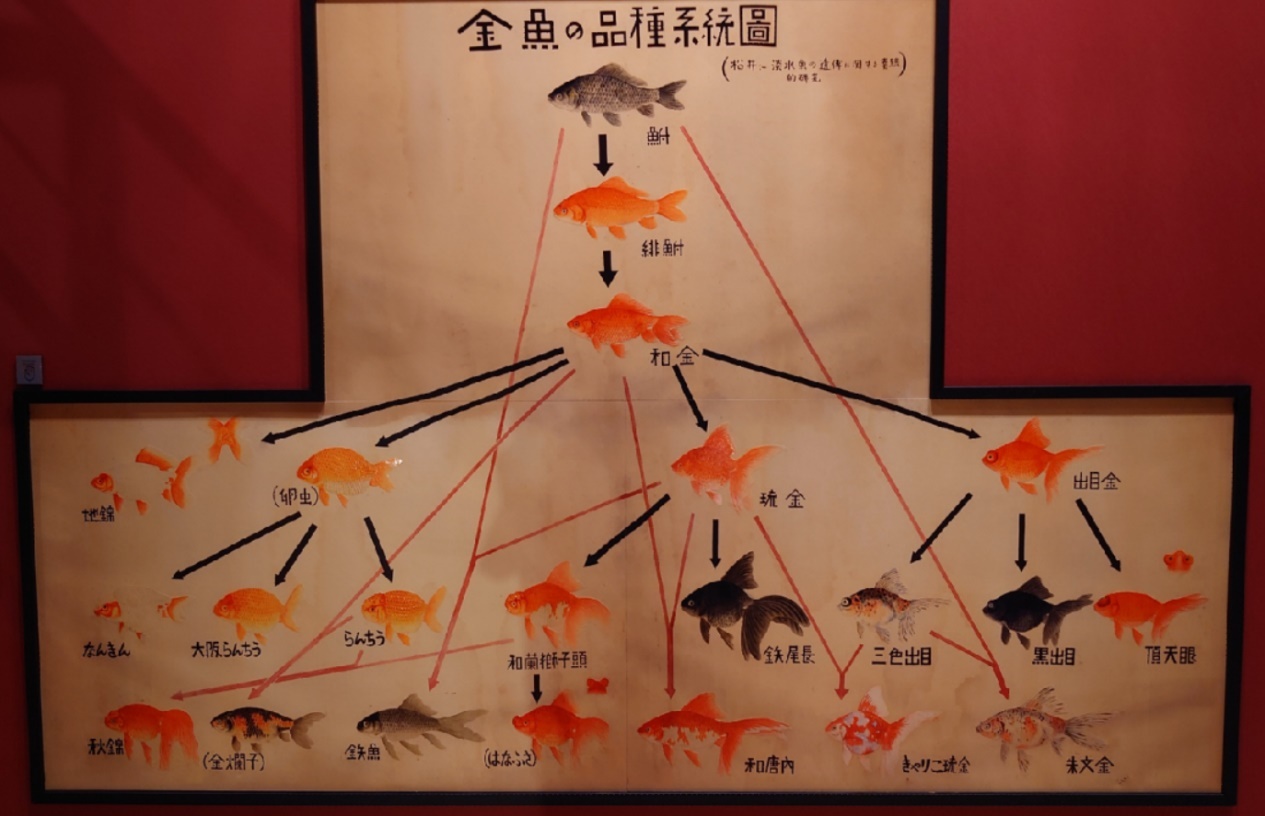 金魚の品種系統圖
的研究
鮒
緋鮒
和金
地錦
(卵虫)
琉金
出目金
なんきん
大阪らんちう
らんちう
和蘭獅子頭
鉄尾長
三色出目
黒出目
頂天眼
秋錦
(金襴子)
鉄魚
(はなふさ)
和唐内
きやりこ琉金
朱文金